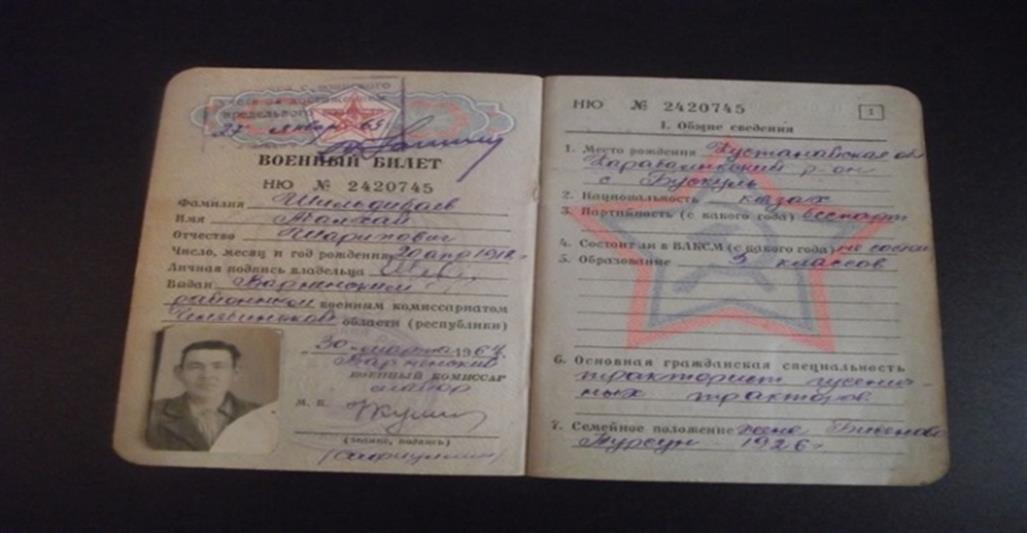 воинского
предельного
27 января 69
ВОЕННЫЙ БИЛЕТ
НЮ № 2420745
Фамилия Шильдибаев
Имя Малхай
Отчество Шарипович
Число, месяц и год рождения 20 апр 1918 г
Личная подпись владельца
Выдан Варненским
районным военным комиссариатом
Челябинской области (республики)
30 марта 1964 г.
Варненский
ВОЕННЫЙ КОМИССАР
майор
М. П.
(звание, подпись)
НЮ № 2420745 1
I. Общие сведения
1. Место рождения Кустанайская об
Карабалыкский р-он
с Бускуль
2. Национальность казах
3. Партийность (с какого года) беспарт
4. Состоит ли в ВЛКСМ (с какого года) не состои
5. Образование 3 классов
6. Основная гражданская специальность
тракторист гусенич-
ных тракторов.
7. Семейное положение жена
Турсун - 1926 г